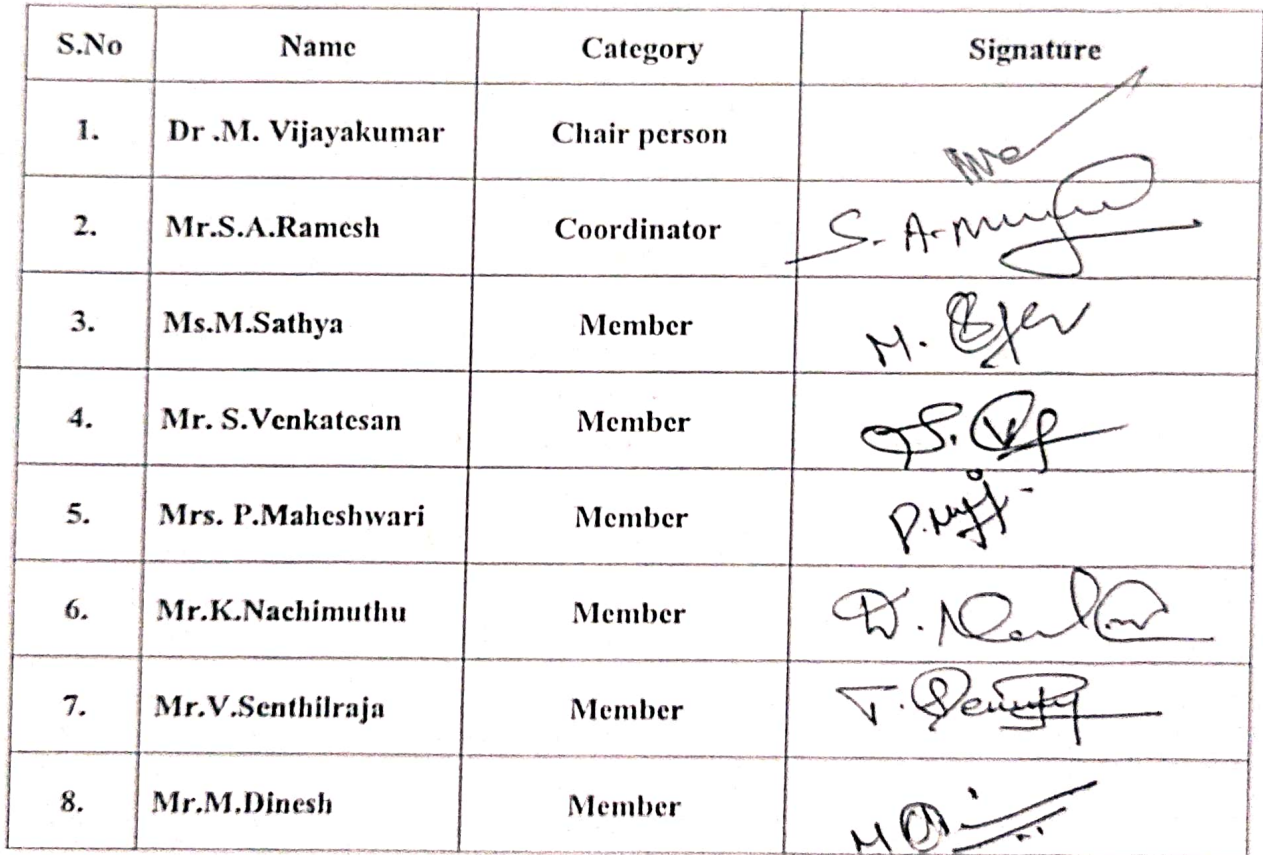 S.No Name Category Signature
1. Dr .M. Vijayakumar Chair person
2. Mr.S.A.Ramesh Coordinator S. A.
3. Ms.M.Sathya Member M.
4. Mr. S.Venkatesan Member S.
5. Mrs. P.Maheshwari Member P.
6. Mr.K.Nachimuthu Member
7. Mr.V.Senthilraja Member
8. Mr.M.Dinesh Member M